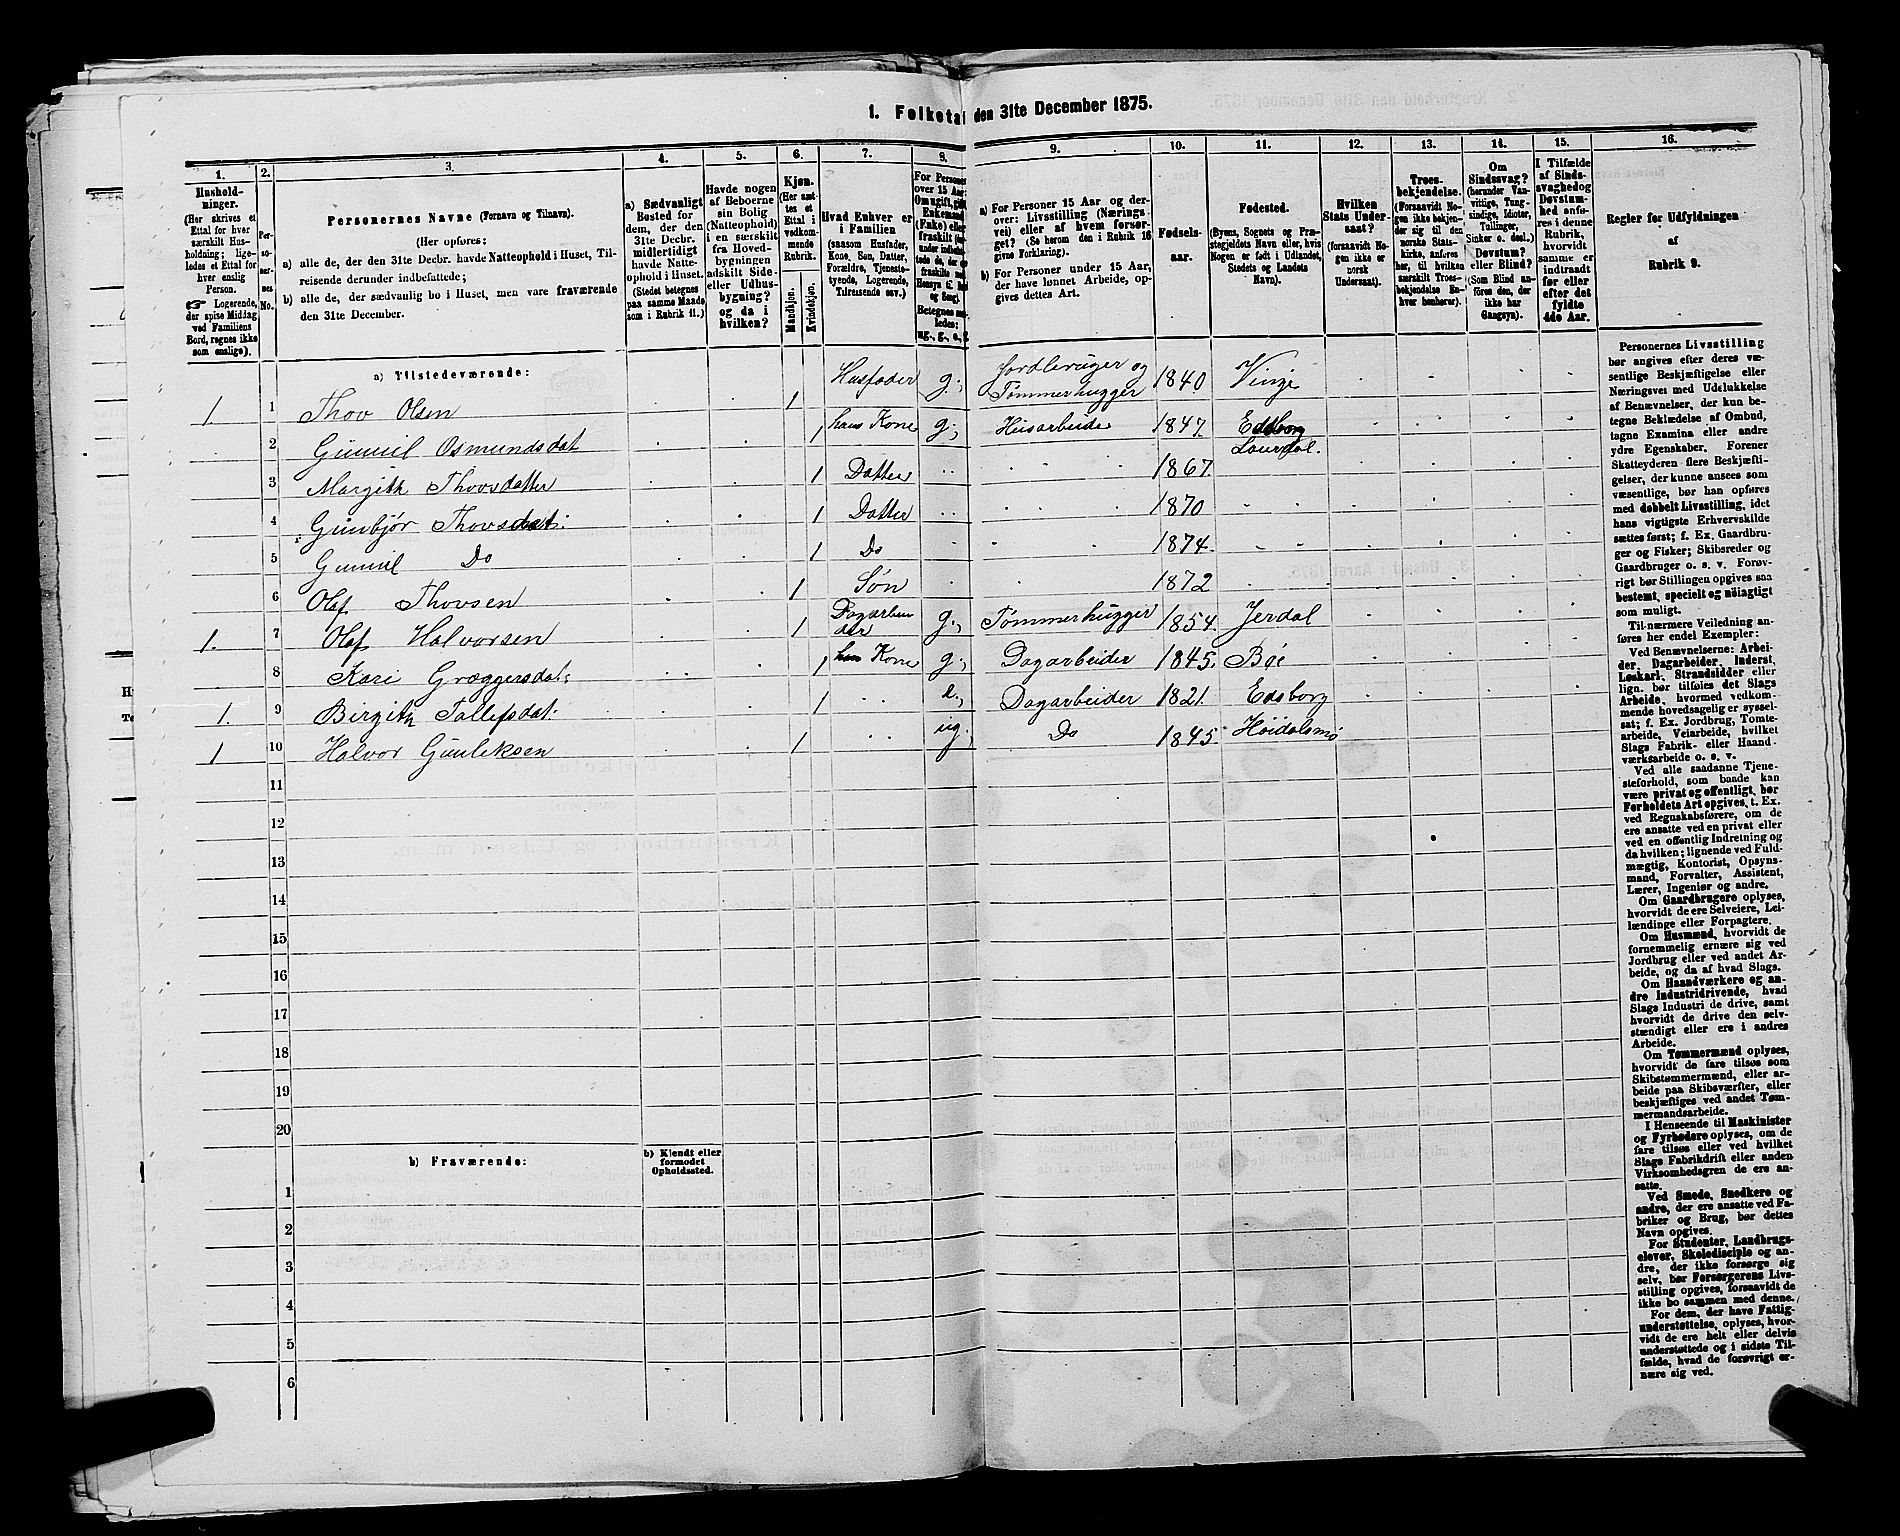 1. Folketal den 31te December 1875.
1. 2. 3. 4. 5. 6. 7. 9. 9. 10. 11. 12. 13. 14. 15. 16.
Hushold-
ninger.
(Her skrives et
Ettal for hver
særskilt Hus-
holdning; lige-
ledes et Ettal for
hver enslig
Person.
☞ Logerende,
der spise Middag
ved Familiens
Bord, regnes ikke
som enslige).
Per-
so-
ner-
nes
No.
Personernes Navne (Fornavn og Tilnavn).
(Her opføres:
a) alle de, der den 31te Decbr. havde Natteophold i Huset, Til-
reisende derunder indbefattede;
b) alle de, der sædvanlig bo i Huset, men vare fraværende
den 31te December.
a) Sædvanligt
Bosted for
dem, der den
31te Decbr.
midlertidigt
havde Natte-
ophold i Huset.
(Stedet betegnes
paa samme Maade
som i Rubrik 11.)
Havde nogen
af Beboerne
sin Bolig
(Natteophold)
i en særskilt
fra Hoved-
bygningen
adskilt Side-
eller Udhus-
bygning?
og da i
hvilken?
Kjøn.
(Her sæt-
tes et
Ettal i
vedkom-
mende
Rubrik.
Mandkjøn.
Kvindekjøn.
Hvad Enhver er
i Familien
(saasom Husfader,
Kone, Søn, Datter,
Forældre, Tjeneste-
tyende, Logerende,
Tilreisende osv.)
For Personer
over 15 Aar:
a) For Personer 15 Aar og der-
over: Livsstilling (Nærings-
vei) eller af hvem forsør-
get? (Se herom den i Rubrik 16
givne Forklaring).
b) For Personer under 15 Aar,
der have lønnet Arbeide, op-
gives dettes Art.
Fødsels-
aar.
Fødested.
(Byens, Sognets og Præ-
stegjeldets Navn eller, hvis
Nogen er født i Udlandet,
Stedets og Landets
Navn).
Hvilken
Stats Under-
saat?
(forsaavidt No-
gen ikke er
norsk
Undersaat).
Troes-
bekjendelse.
(Forsaavidt No-
gen ikke bekjen-
der sig til den
norske Stats-
kirke, anføres
her, til hvilken
særskilt Troes-
bekjendelse En-
hver henhører).
Om
Sindssvag?
(herunder Van-
vittige, Tung-
sindige, Idioter,
Tullinger,
Sinker o. desl.)
Døvstum?
eller Blind?
(Som Blind an-
føres den, der
ikke har
Gangsyn).
I Tilfælde
af Sinds-
svaghed og
Døvstum-
hed anfø-
res i denne
Rubrik,
hvorvidt
samme er
indtraadt
før eller
efter det
fyldte
4de Aar.
Regler for Udfyldningen
af
Rubrik 9.
a) Tilstedeværende:
1. 1 Thov Olsen 1 Husfader g., Jordbruger og Tømmerhugger 1840 Vinje
2 Gunnil Osmundsdat 1 hans Kone g., Husarbeide 1847. Edsborg Laurdal.
3 Margith Thovsdatter 1 Datter 1867.
4 Gunbjør Thovsdat: 1 Datter 1870
5 Gunnil Do 1 Do 1874.
6 Olaf Thovsen 1 Søn 1872
1. 7 Olaf Halvorsen 1 g., Tømmerhugger 1854. Jerdal
8 Kari Græggersdat: 1 Kone g., Dagarbeider 1845. Bøe
1. 9 Birgith Tallefsdat. 1 e., Dagarbeider 1821. Edsborg
1 10 Halvor Gunleksen 1 ug., Do 1845. Høidalsmø
11
12
13
14
15
16
17
18
19
20
b) Fraværende:
b) Kjendt eller
formodet
Opholdssted.
1
2
3
4
5
6
Personernes Livsstilling
bør angives efter deres væ-
sentlige Beskjæftigelse eller
Næringsvei med Udelukkelse
af Benævnelser, der kun be-
tegne Beklædelse af Ombud,
tagne Examina eller andre
ydre Egenskaber. Forener
Skatteyderen flere Beskjæfti-
gelser, der kunne ansees som
væsentlige, bør han opføres
med dobbelt Livsstilling, idet
hans vigtigste Erhvervskilde
sættes først; f. Ex. Gaardbru-
ger og Fisker; Skibsreder og
Gaardbruger o. s. v. Forøv-
rigt bør Stillingen opgives saa
bestemt, specielt og nøiagtigt
som muligt.
Til nærmere Veiledning an-
føres her endel Exempler:
Ved Benævnelserne: Arbei-
der, Dagarbeider, Inderst,
Løskarl, Strandsidder eller
lign. bør tilføies det Slags
Arbeide, hvormed vedkom-
mende hovedsagelig er syssel-
sat; f. Ex. Jordbrug, Tomte-
arbeide, Veiarbeide, hvilket
Slags Fabrik- eller Haand-
værksarbeide o. s. v.
Ved alle saadanne Tjene-
steforhold, som baade kan
være privat og offentligt, bør
Forholdets Art opgives, t. Ex.
ved Regnskabsførere, om de
ere ansatte ved en privat eller
ved en offentlig Indretning og
da hvilken; lignende ved Fuld-
mægtig, Kontorist, Opsyns-
mand, Forvalter, Assistent,
Lærer, Ingeniør og andre.
Om Gaardbrugere oplyses,
hvorvidt de ere Selveiere, Lei-
lændinge eller Forpagtere.
Om Husmænd, hvorvidt de
fornemmelig ernære sig ved
Jordbrug eller ved andet Ar-
beide, og da af hvad Slags.
Om Haandværkere og an-
dre Industridrivende, hvad
Slags Industri de drive, samt
hvorvidt de drive den selv-
stændigt eller ere i andres
Arbeide.
Om Tømmermænd oplyses,
hvorvidt de fare tilsøs som
Skibstømmermænd, eller ar-
beide paa Skibsværfter, eller
beskjæftiges ved andet Tøm-
mermandsarbeide.
I Henseende til Maskinister
og Fyrbødere oplyses, om de
fare tilsøs eller ved hvilket
Slags Fabrikdrift eller anden
Virksomhedsgren de ere an-
satte.
Ved Smede, Snedkere og
andre, der ere ansatte ved Fa-
briker og Brug, bør dettes
Navn opgives.
For Studenter, Landbrugs-
elever, Skoledisciple og an-
dre, der ikke forsørge sig
selv, bør Forsørgerens Livs-
stilling opgives, forsaavidt de
ikke bo sammen med denne.
For dem, der have Fattig-
understøttelse, oplyses, hvor-
vidt de ere helt eller delvis
understøttede og i sidste Til-
fælde, hvad de forøvrigt er-
nære sig ved.